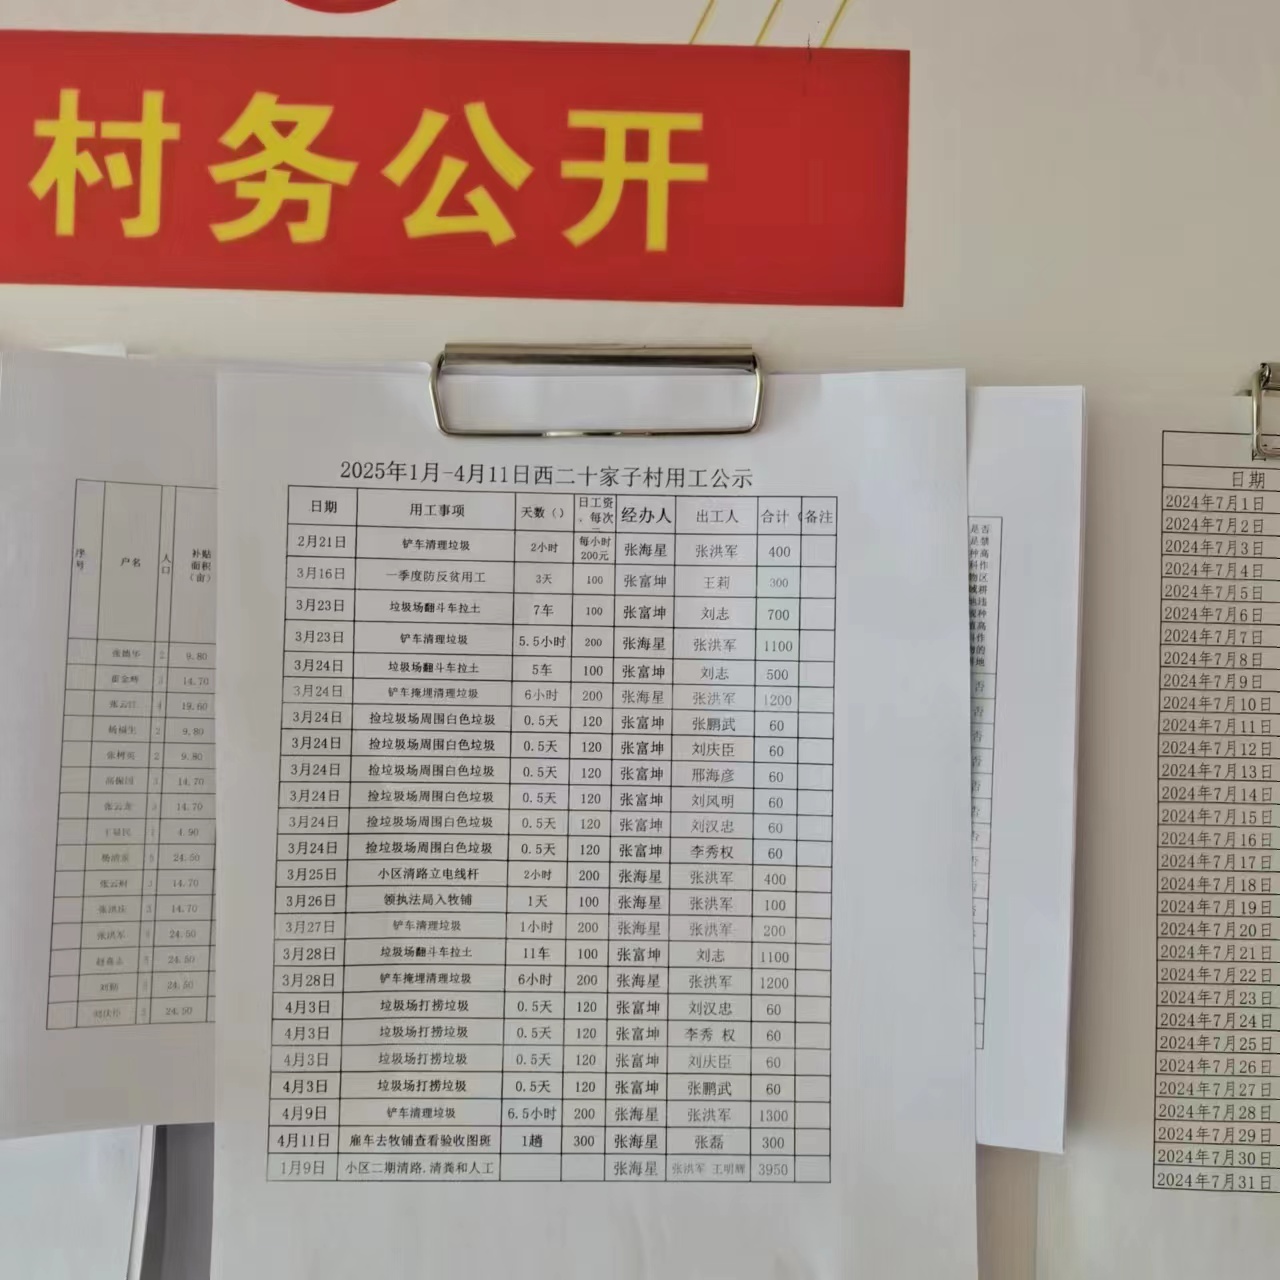 村务公开
2025年1月-4月11日西二十家子村用工公示
日期 用工事项 天数（） 日工资、每次 经办人 出工人 合计（ 备注
2月21日 铲车清理垃圾 2小时 每小时200元 张海星 张洪军 400
3月16日 一季度防反贫用工 3天 100 张富坤 王莉 300
3月23日 垃圾场翻斗车拉土 7车 100 张富坤 刘志 700
3月23日 铲车清理垃圾 5.5小时 200 张海星 张洪军 1100
3月24日 垃圾场翻斗车拉土 5车 100 张富坤 刘志 500
3月24日 铲车掩埋清理垃圾 6小时 200 张海星 张洪军 1200
3月24日 捡垃圾场周围白色垃圾 0.5天 120 张富坤 张鹏武 60
3月24日 捡垃圾场周围白色垃圾 0.5天 120 张富坤 刘庆臣 60
3月24日 捡垃圾场周围白色垃圾 0.5天 120 张富坤 邢海彦 60
3月24日 捡垃圾场周围白色垃圾 0.5天 120 张富坤 刘风明 60
3月24日 捡垃圾场周围白色垃圾 0.5天 120 张富坤 刘汉忠 60
3月24日 捡垃圾场周围白色垃圾 0.5天 120 张富坤 李秀权 60
3月25日 小区清路立电线杆 2小时 200 张海星 张洪军 400
3月26日 领执法局入牧铺 1天 100 张海星 张洪军 100
3月27日 铲车清理垃圾 1小时 200 张海星 张洪军 200
3月28日 垃圾场翻斗车拉土 11车 100 张富坤 刘志 1100
3月28日 铲车掩埋清理垃圾 6小时 200 张海星 张洪军 1200
4月3日 垃圾场打捞垃圾 0.5天 120 张富坤 刘汉忠 60
4月3日 垃圾场打捞垃圾 0.5天 120 张富坤 李秀 权 60
4月3日 垃圾场打捞垃圾 0.5天 120 张富坤 刘庆臣 60
4月3日 垃圾场打捞垃圾 0.5天 120 张富坤 张鹏武 60
4月9日 铲车清理垃圾 6.5小时 200 张海星 张洪军 1300
4月11日 雇车去牧铺查看验收图班 1趟 300 张海星 张磊 300
1月9日 小区二期清路.清粪和人工 张海星 张洪军 王明辉 3950
序号 户名 人口 补贴面积（亩）
2 9.80
14.70
19.60
杨福生 2 9.80
张树英 2 9.80
14.70
张云龙 3 14.70
4.90
24.50
张云财 3 14.70
张洪庆 3 14.70
张洪军 24.50
24.50
24.50
24.50
日期
2024年7月1日
2024年7月2日
2024年7月3日
2024年7月4日
2024年7月5日
2024年7月6日
2024年7月7日
2024年7月8日
2024年7月9日
2024年7月10日
2024年7月11日
2024年7月12日
2024年7月13日
2024年7月14日
2024年7月15日
2024年7月16日
2024年7月17日
2024年7月18日
2024年7月19日
2024年7月20日
2024年7月21日
2024年7月22日
2024年7月23日
2024年7月24日
2024年7月25日
2024年7月26日
2024年7月27日
2024年7月28日
2024年7月29日
2024年7月30日
2024年7月31日